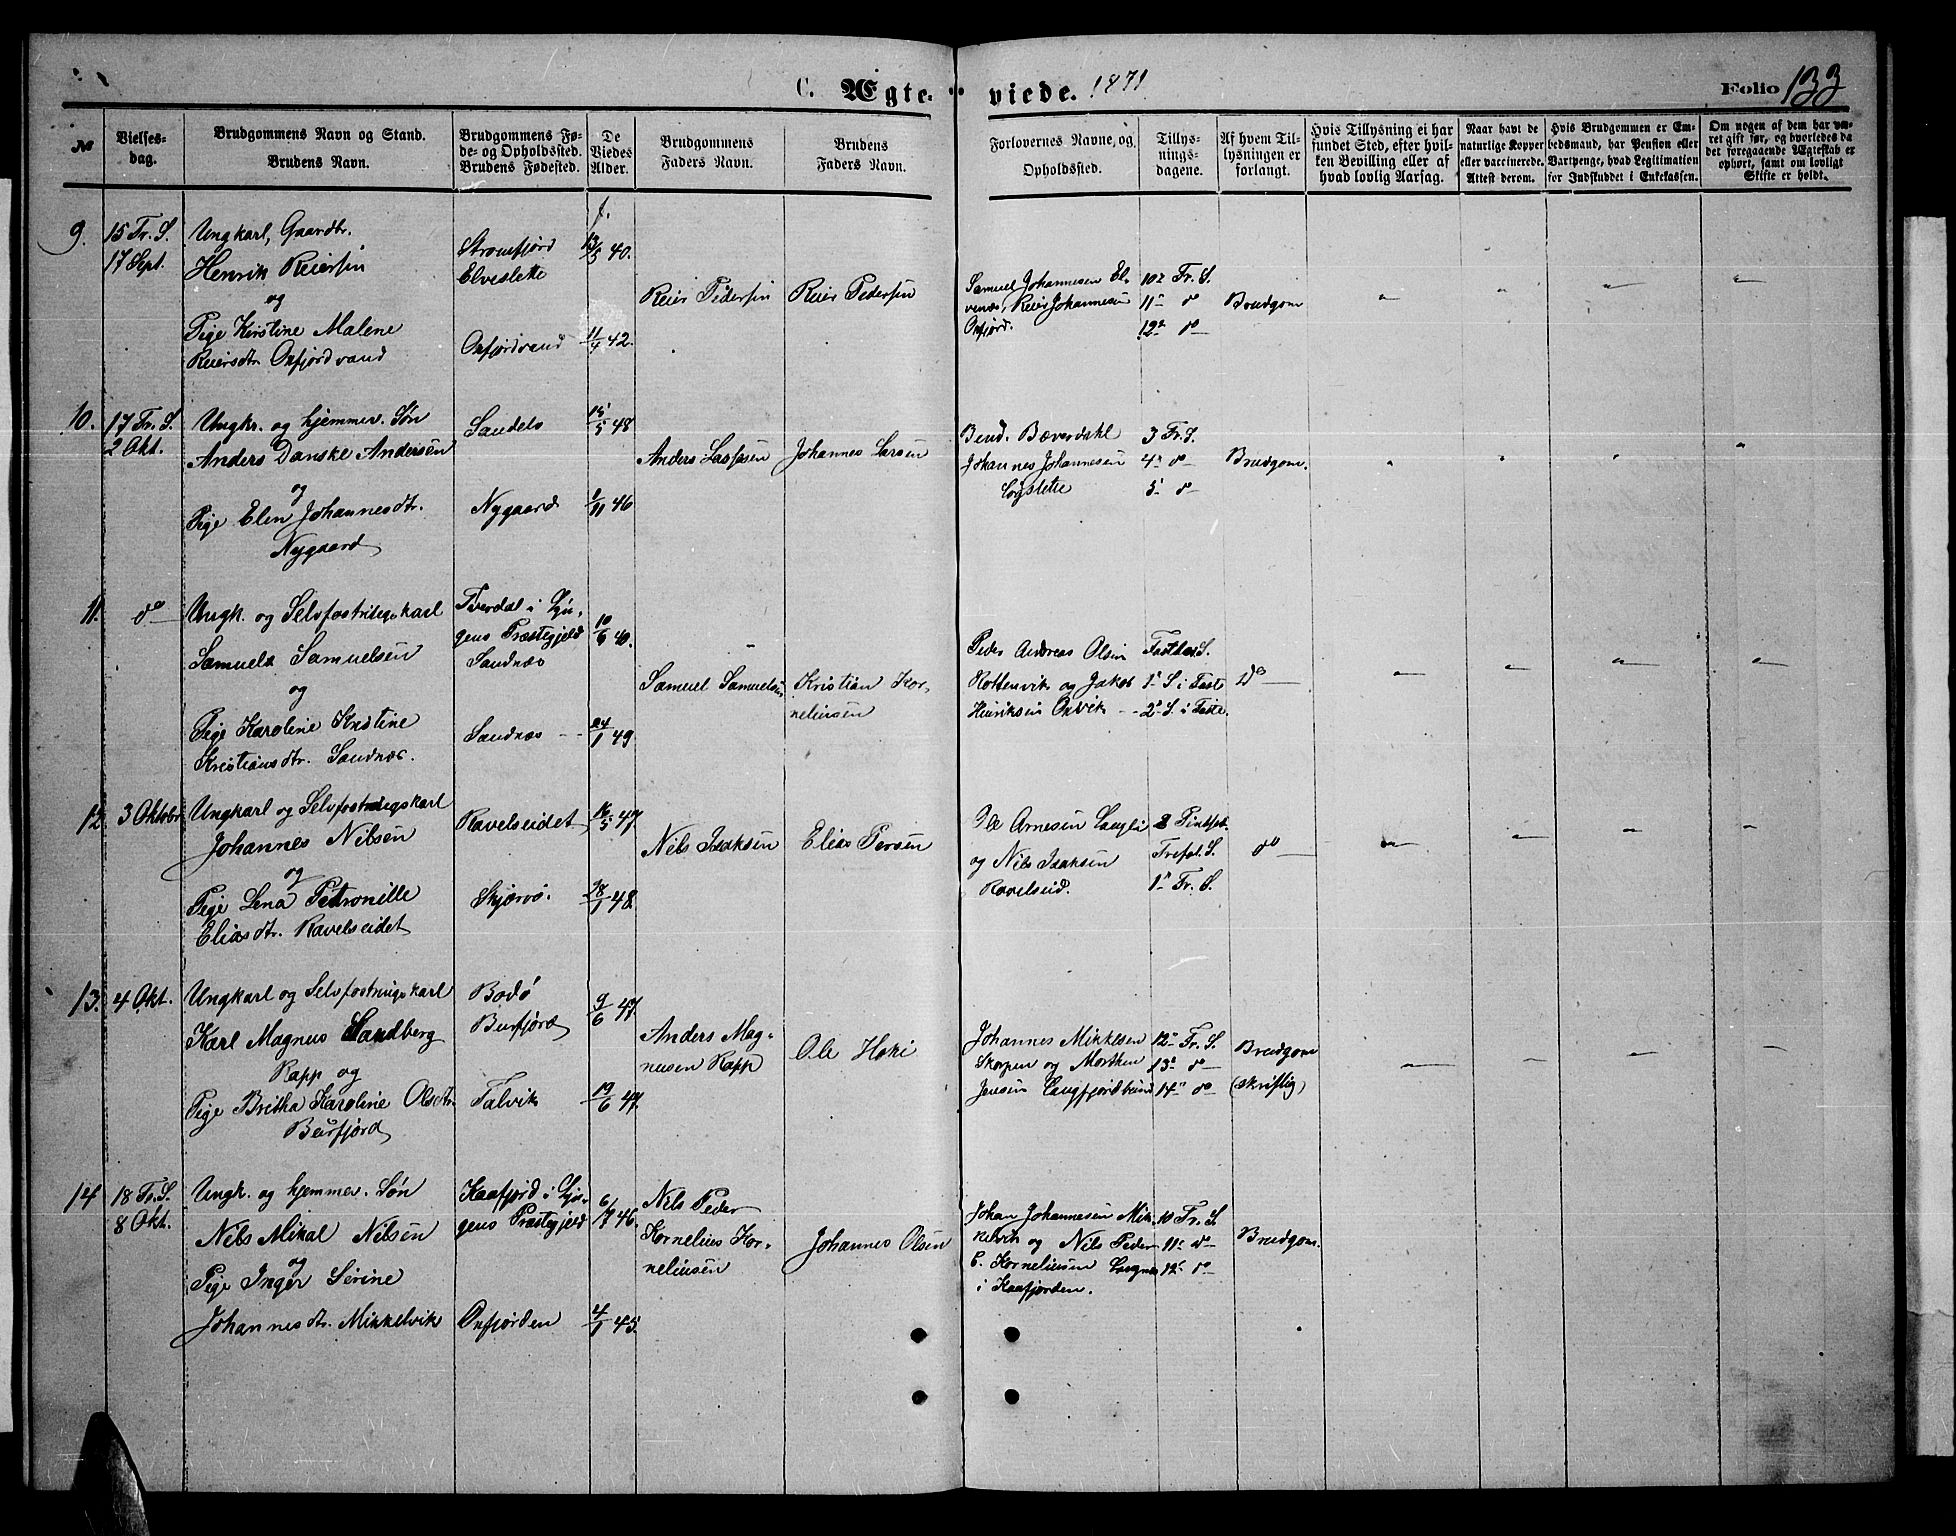 C. Ægteviede. 1871
Folio 133
№
Vielses-
dag.
Brudgommens Navn og Stand.
Brudens Navn.
Brudgommens Fø-
de- og Opholdssted.
Brudens Fødested.
De
Viedes
Alder.
Brudgommens
Faders Navn.
Brudens
Faders Navn.
Forlovernes Navne, og
Opholdssted.
Tillys-
nings-
dagene.
Af hvem Til-
lysningen er
forlangt.
Hvis Tillysning ei har
fundet Sted, efter hvil-
ken Bevilling eller af
hvad lovlig Aarsag.
Naar havt de
naturlige Kopper
eller vaccinerede.
Attest derom.
Hvis Brudgommen er Em-
bedsmand, har Pension eller
Vartpenge, hvad Legitimation
for Indskuddet i Enkekassen.
Om nogen af dem har væ-
ret gift før, og hvorledes da
det foregaaende Ægteskab er
ophørt, samt om lovligt
Skifte er holdt.
9.
15 Tr. S.
17 Sept.
Ungkarl, Gaardbr.
Henrik Reiersen
og
Pige Kirstine Malene
Reiersdtr. Oxfjordvand
Straumfjord
Elveslette
Oxfjordvand
f.
13/5 40.
11/4 42.
Reier Pedersen
Reier Pedersen
Samuel Johannesen El-
venæs, Reier Johannesen
Oxfjord.
10de Tr. S.
11te do
12te do
Brudgom
10.
17 Tr. S.
2 Okt.
Ungkr. og hjemmev. Søn
Anders Danske Andersen
og
Pige Elen Johannesdtr.
Nygaard
Sandels
Nygaard
15/5 48
1/11 46
Anders Lassesen
Johannes Larsen
Bend. Bæverdahl
Johannes Johannesen
Løgslette
3 Tr. S.
4de do
5te do
Brudgom.
11.
do
Ungk. og Selvfostringskarl
Samuel Samuelsen
og
Pige Karoline Kristine
Kristiansdtr. Sandnæs.
Tverdal i Lyn-
gens Præstegjeld
Sandnæs
Sandnæs
10/6 40.
24/1 49
Samuel Samuelsen
Kristian Kor-
neliusen
Peder Andreas Olsen
Rottenvik og Jakob
Henriksen Oxvik
Fastel. S.
1te S. i Faste
2de S. i Faste.
Do
12
3 Oktobr
Ungkarl og Selvfostringskarl
Johannes Nilsen
og
Pige Lena Petronille
Eliasdtr. Ravelseidet
Ravelseidet
Skjærvø.
16/5 47.
28/1 48.
Nils Isaksen
Elias Persen
Ole Arnesen Langli
og Nils Isaksen
Ravelseid.
2 Pintsed.
Trefol. S.
1te Tr. S.
do
13.
4 Okt.
Ungkarl og Selvfostringskarl
Karl Magnus Sandberg
Rapp og
Pige Britha Karoline Olsdtr.
Burfjord
Bodø
Burfjord
Talvik
9/6 47.
19/6 47.
Anders Mag-
nusen Rapp
Ole Hoki
Johannes Mikkelsen
Skorpen og Morthen
Jensen Langfjordbund
12te Tr. S.
13de do
14de do
Brudgom
(skriftlig)
14
18 Tr. S.
8 Okt.
Ungk. og hjemmev. Søn
Nils Mikal Nilsen
og
Pige Inger Serine
Johannesdtr. Mikkelvik
Kaafjord i Lyn-
gens Præstegjeld
Oxfjorden
6/7 46.
4/1 45.
Nils Peder
Kornelius Kor-
neliusen
Johannes Olsen
Johan Johannesen Mik-
kelvik og Nils Peder
C. Korneliusen Langnes
i Kaafjorden.
10 Tr. S.
11te do
12te do
Brudgom.